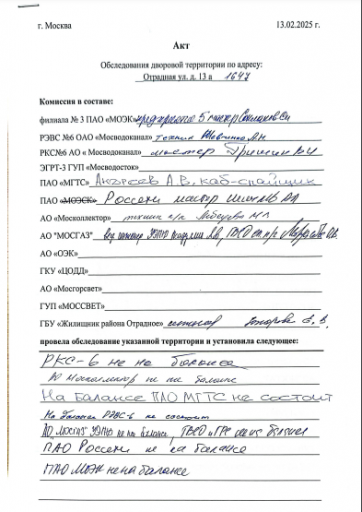 г. Москва 13.02.2025 г.
Акт
Обследования дворовой территории по адресу:
Отрадная ул. д. 13 а 1647
Комиссия в составе:
филиала № 3 ПАО «МОЭК»
РЭВС №6 ОАО «Мосводоканал» техник
РКС№6 АО « Мосводоканал» мастер
ЭГРТ-3 ГУП «Мосводосток»
ПАО «МГТС» Андреев А.В. каб-спайщик
ПАО «МОЭСК» Россети мастер
АО «Москоллектор» техник
АО "МОСГАЗ"
АО «ОЭК»
ГКУ «ЦОДД»
АО «Мосгорсвет»
ГУП «МОССВЕТ»
ГБУ «Жилищник района Отрадное»
провела обследование указанной территории и установила следующее:
РКС-6 не на балансе
АО Москоллектор не на балансе
На балансе ПАО МГТС не состоит
На балансе РЭВС-6 не состоит
АО Мосгаз не на балансе
ПАО Россети не на балансе
ПАО МОЭК не на балансе